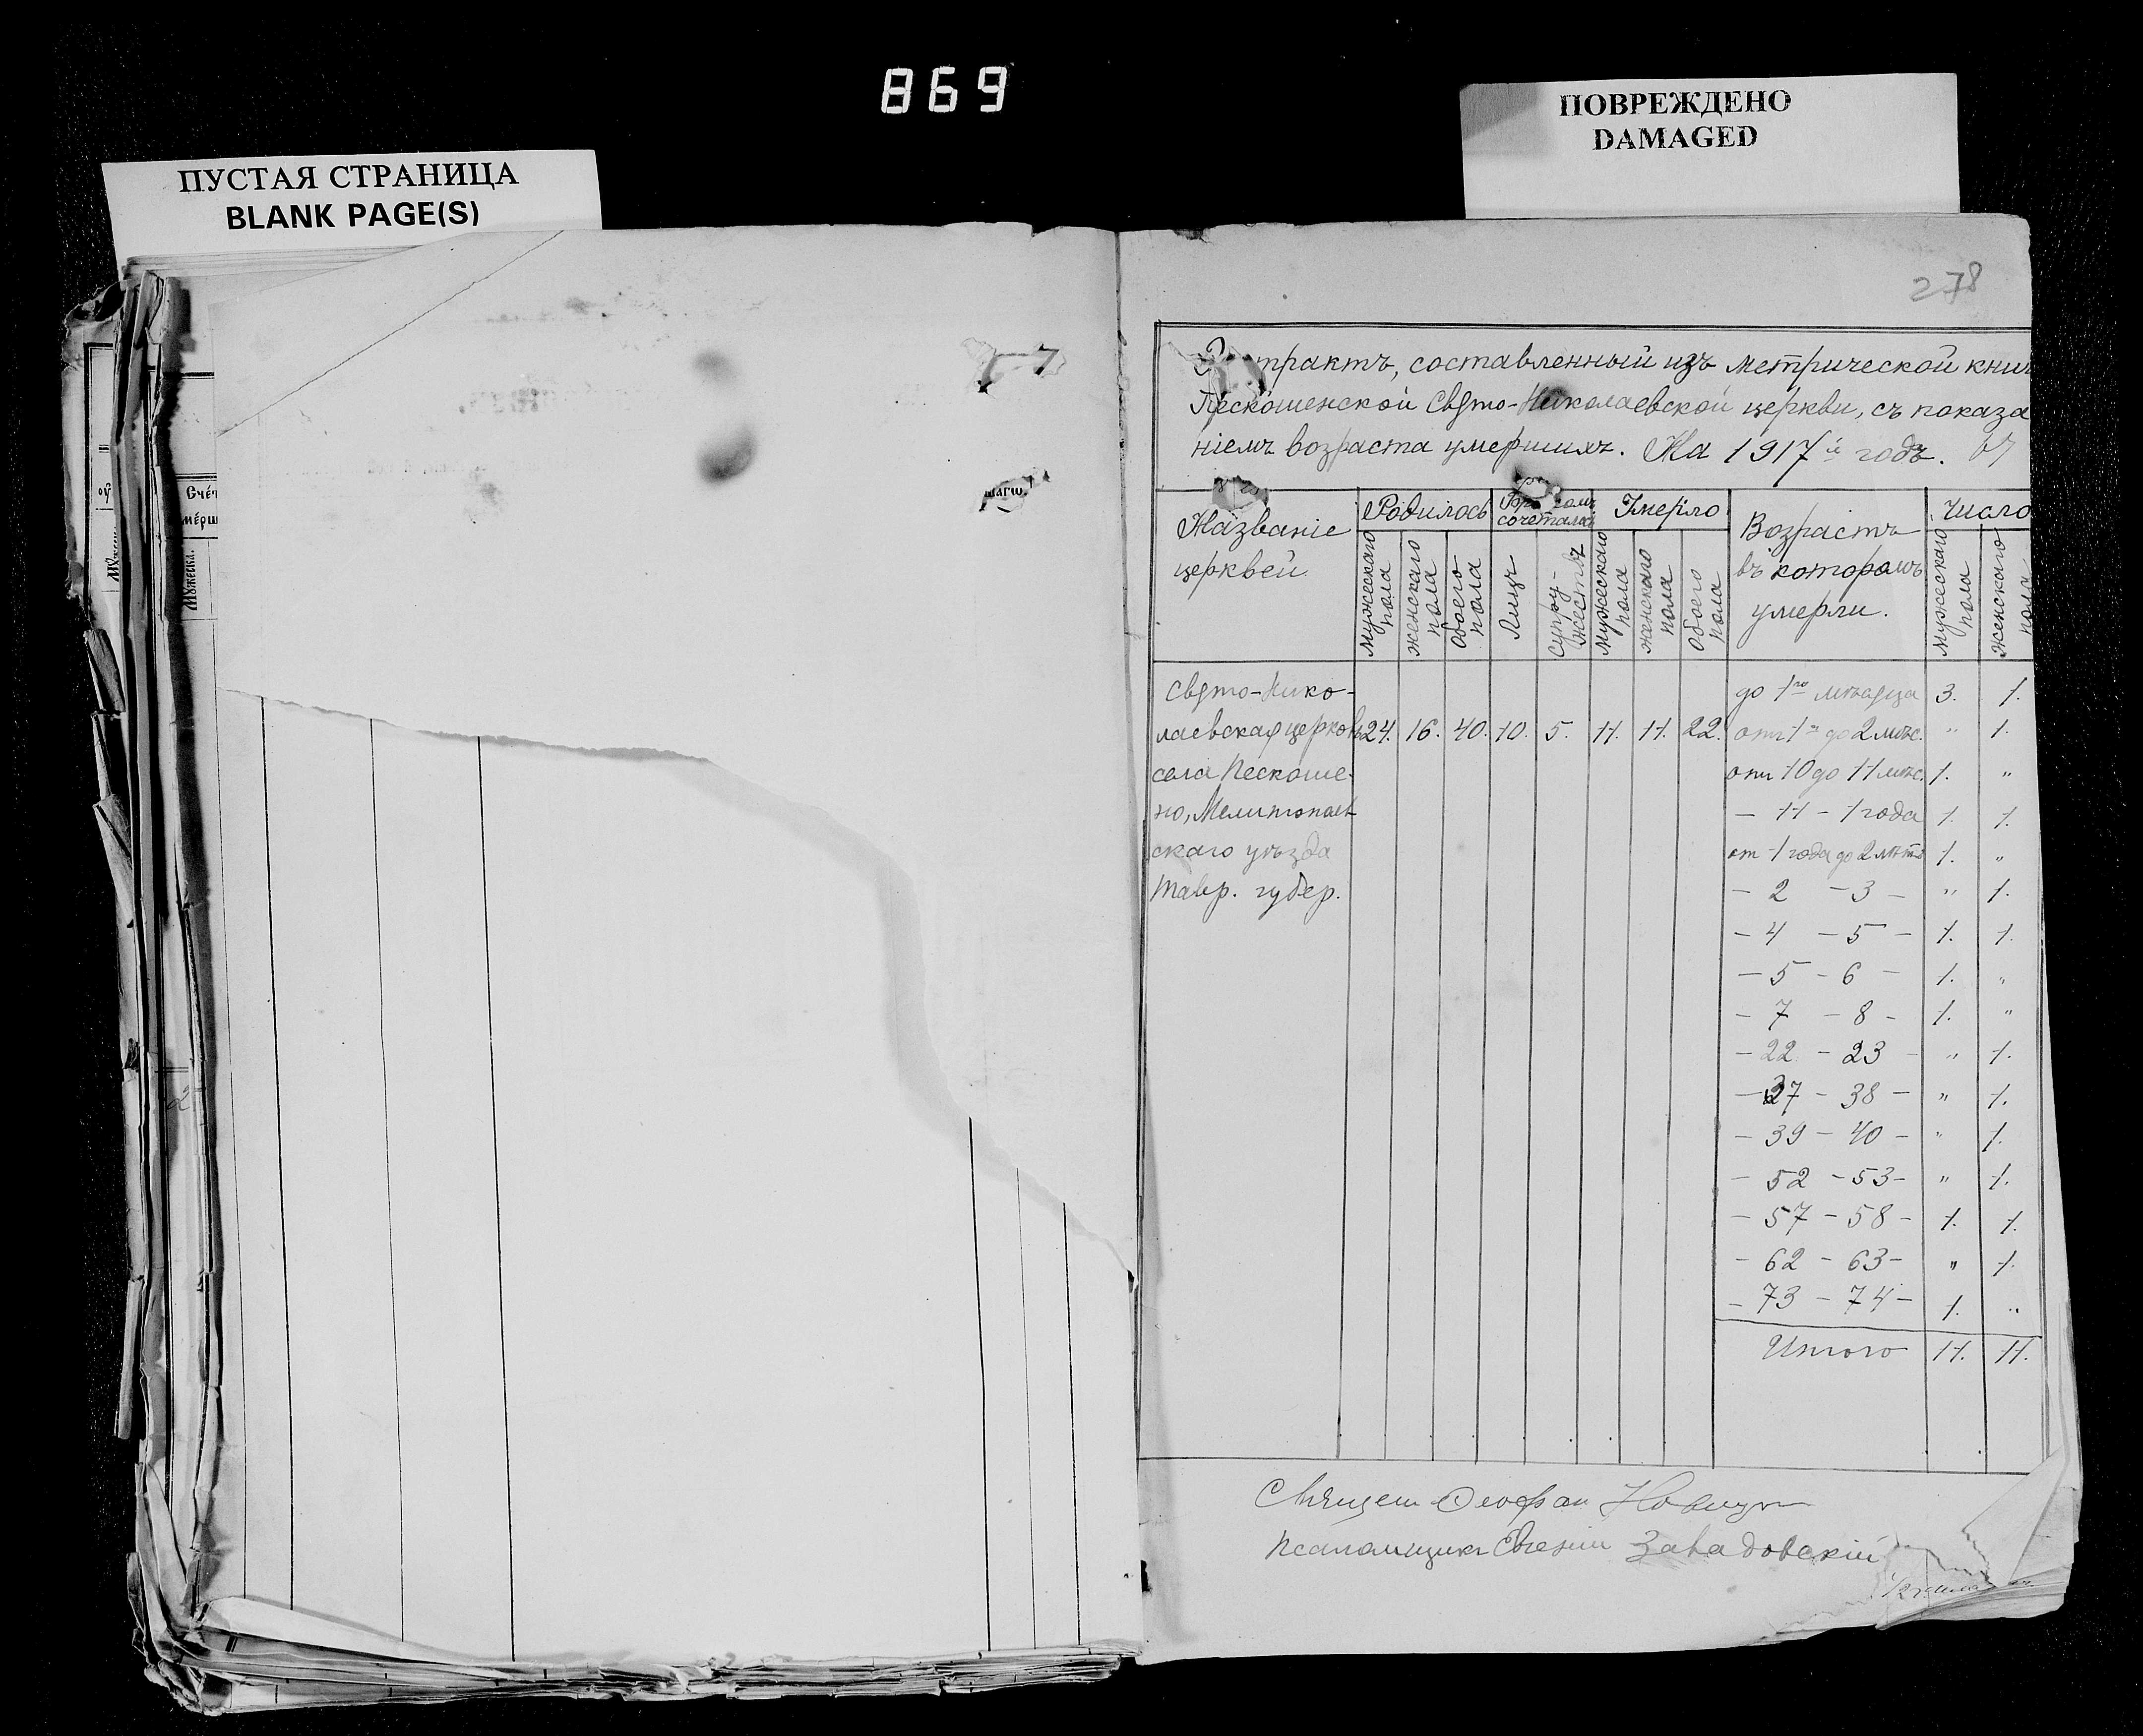 869
ПУСТАЯ СТРАНИЦА
BLANK PAGE(S)
ПОВРЕЖДЕНО
DAMAGED
278
трактъ, составленный изъ метрической книг
Пескошенской Свято-Николаевской церкви, съ показа
ніемъ возраста умершихъ. На 1917й годъ.
Названіе
церквей
Родилось
сочеталось
Умерло
Возрастъ
въ которомъ
умерли.
Число
мужескаго пола
женскаго пола
обоего пола
Лицъ
супружествъ
мужескаго пола
женскаго пола
обоего пола
мужескаго пола
женскаго пола
Свято-Нико-
лаевская церковь 24. 16. 40. 10. 5. 11. 11. 22.
села Пескоше-
но, Мелитополь-
скаго уѣзда
Тавр. губер.
до 1го мѣсяца 3. 1.
отъ 1 до 2 мѣс. " 1.
отъ 10 до 11 мѣс. 1. "
– 11 – 1 года 1. 1.
от 1 года до 2 лѣтъ 1. "
– 2 – 3 – " 1.
– 4 – 5 – 1. 1.
– 5 – 6 – 1. "
– 7 – 8 – 1. "
– 22 – 23 – " 1.
– 37 – 38 – " 1.
– 39 – 40 – " 1.
– 52 – 53 – " 1.
– 57 – 58 – 1. 1.
– 62 – 63 – " 1.
– 73 – 74 – 1. "
Итого 11. 11.
Священ Феофан
Псаломщикъ Евгеній Завадовскій
Счéт
Мужеска.